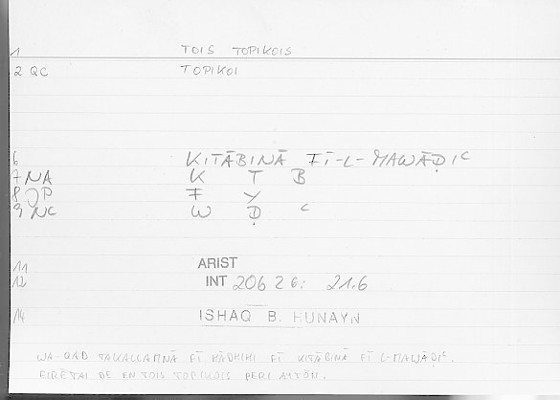 1 TOIS TOPIKOIS
2 QC TOPIKOI
6 KITĀBINĀ FĪ-L-MAWĀḌIᶜ
7 NA K T B
8 QP F Y
9 NC W Ḍ ᶜ
11 ARIST
12 INT 20626: 21.6
14 ISHAQ B. HUNAYN
WA-QAD TAKALLAMNĀ FĪ HĀDHIHI FĪ KITĀBINĀ FĪ L-MAWĀḌIᶜ.
EIRĒTAI DE EN TOIS TOPIKOIS PERI AYTŌN.